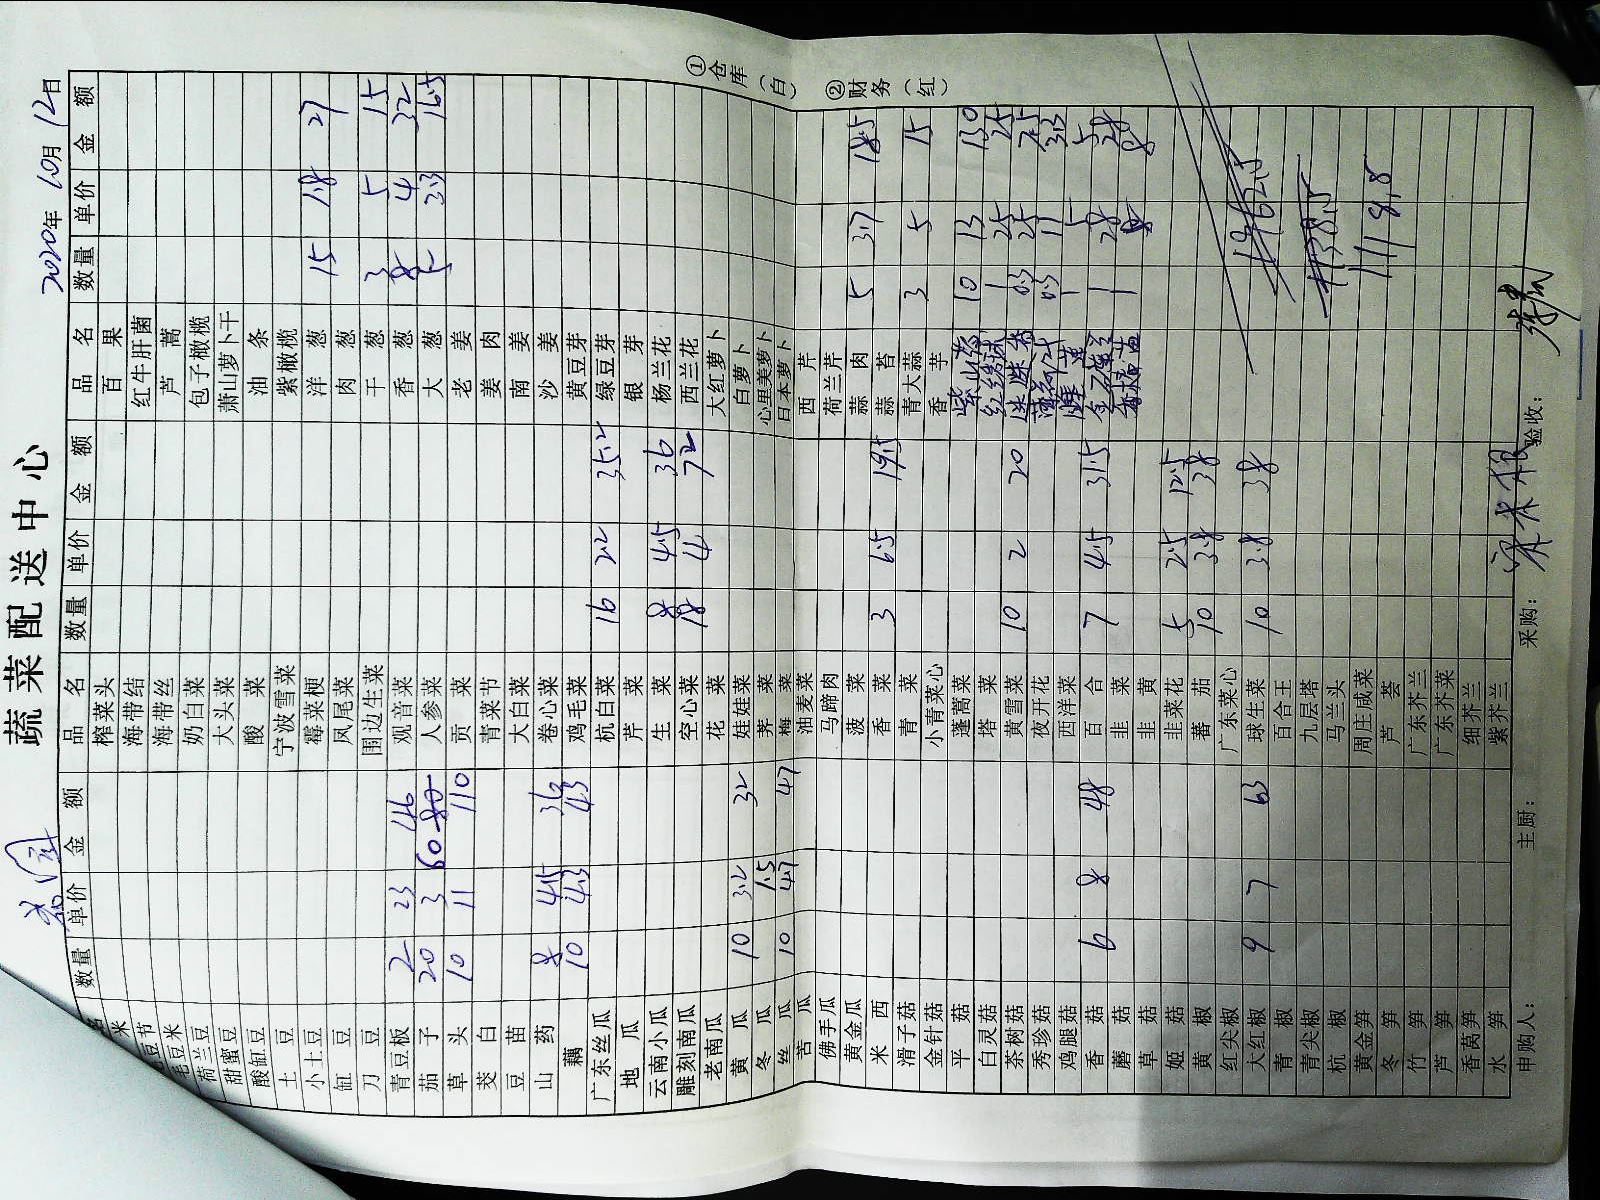 蔬菜配送中心
2020年 10月 12日
数量 单价 金额 品名 数量 单价 金额 品名 数量 单价 金额
米 榨菜头 百果
毛豆节 海带结 红牛肝菌
毛豆米 海带丝 芦蒿
荷兰豆 奶白菜 包子橄榄
甜蜜豆 大头菜 萧山萝卜干
酸缸豆 酸菜 油条
土豆 宁波雪菜 紫橄榄
小土豆 霉菜梗 洋葱 15 1.8 27
缸豆 凤尾菜 肉葱
刀豆 围边生菜 干葱 3 5 15
青豆板 2 23 46 观音菜 香葱 8 4 32
茄子 20 3 60 人参菜 大葱 5 3.3 16.5
草头 10 11 110 贡菜 老姜
茭白 青菜节 姜肉
豆苗 大白菜 南姜
山药 8 4.5 36 卷心菜 沙姜
藕 10 4.3 43 鸡毛菜 黄豆芽
广东丝瓜 杭白菜 16 2.2 35.2 绿豆芽
地瓜 芹菜 银芽
云南小瓜 生菜 8 4.5 36 杨兰花
雕刻南瓜 空心菜 18 4 72 西兰花
老南瓜 花菜 大红萝卜
黄瓜 10 3.2 32 娃娃菜 白萝卜
冬瓜 1.5 荠菜 心里美萝卜
丝瓜 10 4.7 47 梅菜 日本萝卜
苦瓜 油麦菜 西芹
佛手瓜 马蹄肉 荷兰芹
黄金瓜 菠菜 蒜肉 5 3.7 18.5
米西 香菜 3 6.5 19.5 蒜苔
滑子菇 青菜 青大蒜 3 5 15
金针菇 小青菜心 香芋
平菇 蓬蒿菜 紫山药 10 13 130
白灵菇 塔菜 红绣球 1 25 25
茶树菇 黄雪菜 10 2 20 0.3 25 7.5
秀珍菇 夜开花
鸡腿菇 西洋菜
香菇 6 8 48 百合 7 4.5 31.5 1 28 28
蘑菇 韭菜
草菇 韭黄
姬菇 韭菜花 5 2.5 12.5
黄椒 蕃茄 10 3.8 38
红尖椒 广东菜心
大红椒 9 7 63 球生菜 10 3.8 38
青椒 百合王
青尖椒 九层塔
杭椒 马兰头
黄金笋 周庄咸菜
冬笋 芦荟
竹笋 广东芥兰
芦笋 广东芥菜
香莴笋 细芥兰
水笋 紫芥兰
1118.8
申购人： 主厨： 采购： 验收：
①仓库（白）
②财务（红）